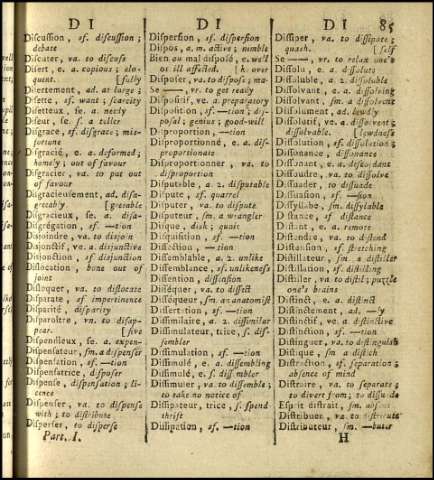 D I
D I
D I 85
Discussion, sf. discussion;
debate
Discuter, va. to discuss
Disert, e, a. copious; elo-
quent. [fully
Disertement, ad. at large;
Disette, sf. want; scarcity
Disetteux, se, a. needy
Diseur, se, f. a teller
Disgrace, sf. disgrace; mis-
fortune
Disgracié, e, a. deformed;
homely; out of favour
Disgracier, va. to put out
of favour
Disgracieusement, ad. disa-
greeably [greeable
Disgracieux, se, a. disa-
Disgrégation, sf. —tion
Disjoindre, va. to disjoin
Disjonctif, ve, a. disjunctive
Disjonction, sf. disjunction
Dislocation, bone out of
joint
Disloquer, va. to dislocate
Disparate, sf. impertinence
Disparité, disparity
Disparoître, vn. to disap-
pear. [sive
Dispendieux, se, a. expen-
Dispensateur, sm. a dispenser
Dispensation, sf. —tion
Dispensatrice, disposer
Dispense, dispensation; li-
cence
Dispenser, va. to dispense
with; to distribute
Disperser, to disperse
Part. I.
Dispersion, sf. dispersion
Dispos, a. m. active; nimble
Bien ou mal disposé, e, well
or ill affected.
Disposer, va. to dispose; ma-
Se —, vr. to get ready
Dispositif, ve, a. preparatory
Disposition, sf. —tion; dis-
posal; genius; good-will
Disproportion, —tion
Disproportionné, e, a. dis-
proportionate
Disproportionner, va. to
disproportion
Disputable, a. 2. disputable
Dispute, sf. quarrel
Disputer, va. to dispute
Disputeur, sm. a wrangler
Disque, disk; quoit
Disquisition, sf. —tion
Dissection, —tion
Dissemblable, a. 2. unlike
Dissemblance, sf. unlikeness
Dissention, dissension
Disséquer, va. to dissect
Disséqueur, sm. an anatomist
Dissertation, sf. —tion
Dissimilaire, a. 2. dissimilar
Dissimulateur, trice, s. dis-
sembler
Dissimulation, sf. —tion
Dissimulé, e, a. dissembling
Dissimulé, e, s. dissembler
Dissimuler, va. to dissemble;
to take no notice of
Dissipateur, trice, s. spend-
thrift
Dissipation, sf. —tion
Dissiper, va. to dissipate;
quash. [self
Se —, vr. to relax one's
Dissolu, e, a. dissolute
Dissoluble, a. 2. dissolvable
Dissolvant, e, a. dissolving
Dissolvant, sm. a dissolvent
Dissolument, ad. lewdly
Dissolutif, ve, a. dissolvent;
dissolvable. [lewdness
Dissolution, sf. dissolution;
Dissonance, dissonance
Dissonant, e, a. dissonant
Dissoudre, va. to dissolve
Dissuader, to dissuade
Dissuasion, sf. —sion
Dissyllabe, sm. dissyllable
Distance, sf. distance
Distant, e, a. remote
Distendre, va. to distend
Distension, sf. stretching
Distillateur, sm. a distiller
Distillation, sf. distilling
Distiller, va. to distil; puzzle
one's brains
Distinct, e, a. distinct
Distinctement, ad. —ly
Distinctif, ve, a. distinctive
Distinction, sf. —tion
Distinguer, va. to distinguish
Distique, sm. a distich
Distraction, sf. separation;
absence of mind
Distraire, va. to separate;
to divert from; to dissuade
Esprit distrait, sm. absent
Distribuer, va. to distribute
Distributeur, sm. —butor
H